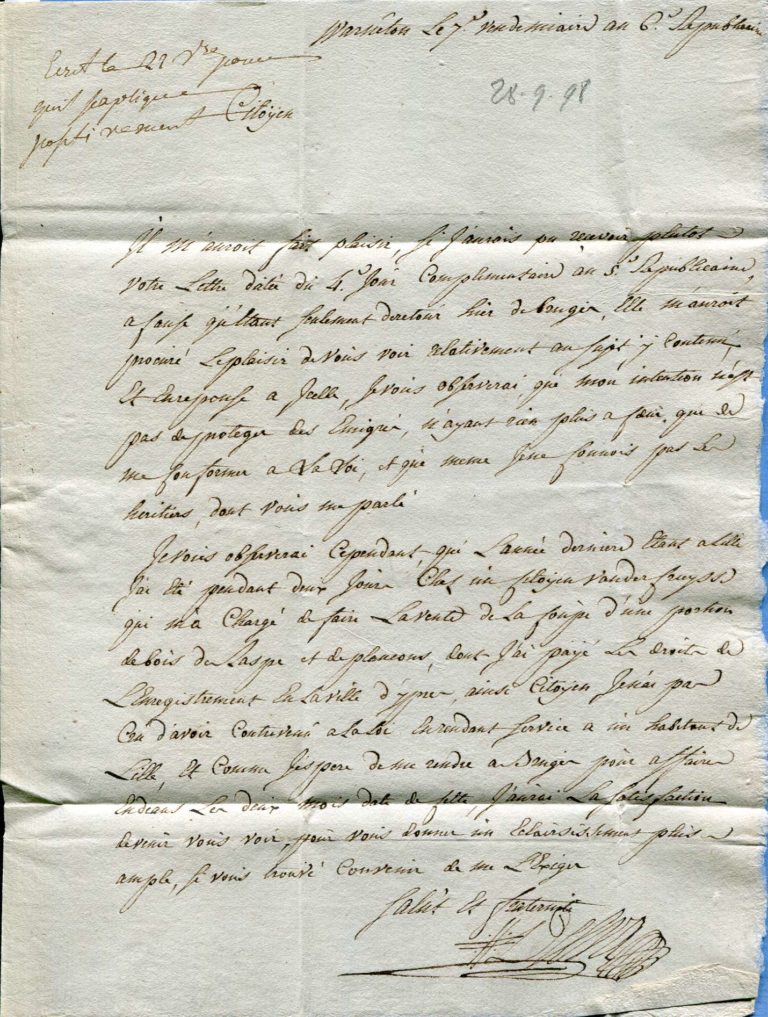 Warnêton Le 7.e vendemiaire an 6.e Republicain
Ecrit le 22 Vre pour
qu'il s'aplique
positivement
28-9-98
Citoyen
Il m'auroit fait plaisir, si J'aurois pu recevoir plutot
votre Lettre datée du 4.e Jour Complimentaire an 5.e Republicaine,
a Cause qu'êttant seulement deretour hier de bruges, Elle m'auroit
procuré Leplaisir devous voir relativement au sujet y Contenu,
Et Enreponse a Icelle, Jevous observerai que mon intention n'est
pas de proteger des Emigré, n'ayant rien plus a Cœur que de
me Conformer a La Loi, et que meme Jene Connois pas Les
heritiers, dont vous me parlé
Jevous observerai Cependant, que L'année derniere Etant a Lille
J'ai été pendant deux Jours Chés un Citoyen vander Cruysse
qui m'a Chargé de faire La vente de La Coupe d'une portion
de bois de Raspe et de plancons, dont J'ai payé Les droits de
L'Enregistrement En La ville d'ypres, ainsi Citoyen Jen'ai pas
Cru d'avoir Contrevenu a La Loi Enrendant service a un habitant de
Lille, Et Comme J'espere de me rendre a Bruges pour affaires
Endeans Les deux mois date de Cette, J'aurai La satisfaction
devenir vous voir, pour vous donner un Eclairsissement plus
ample, si vous trouvé Convenir de me L'Exiger
Salut Et fraternité